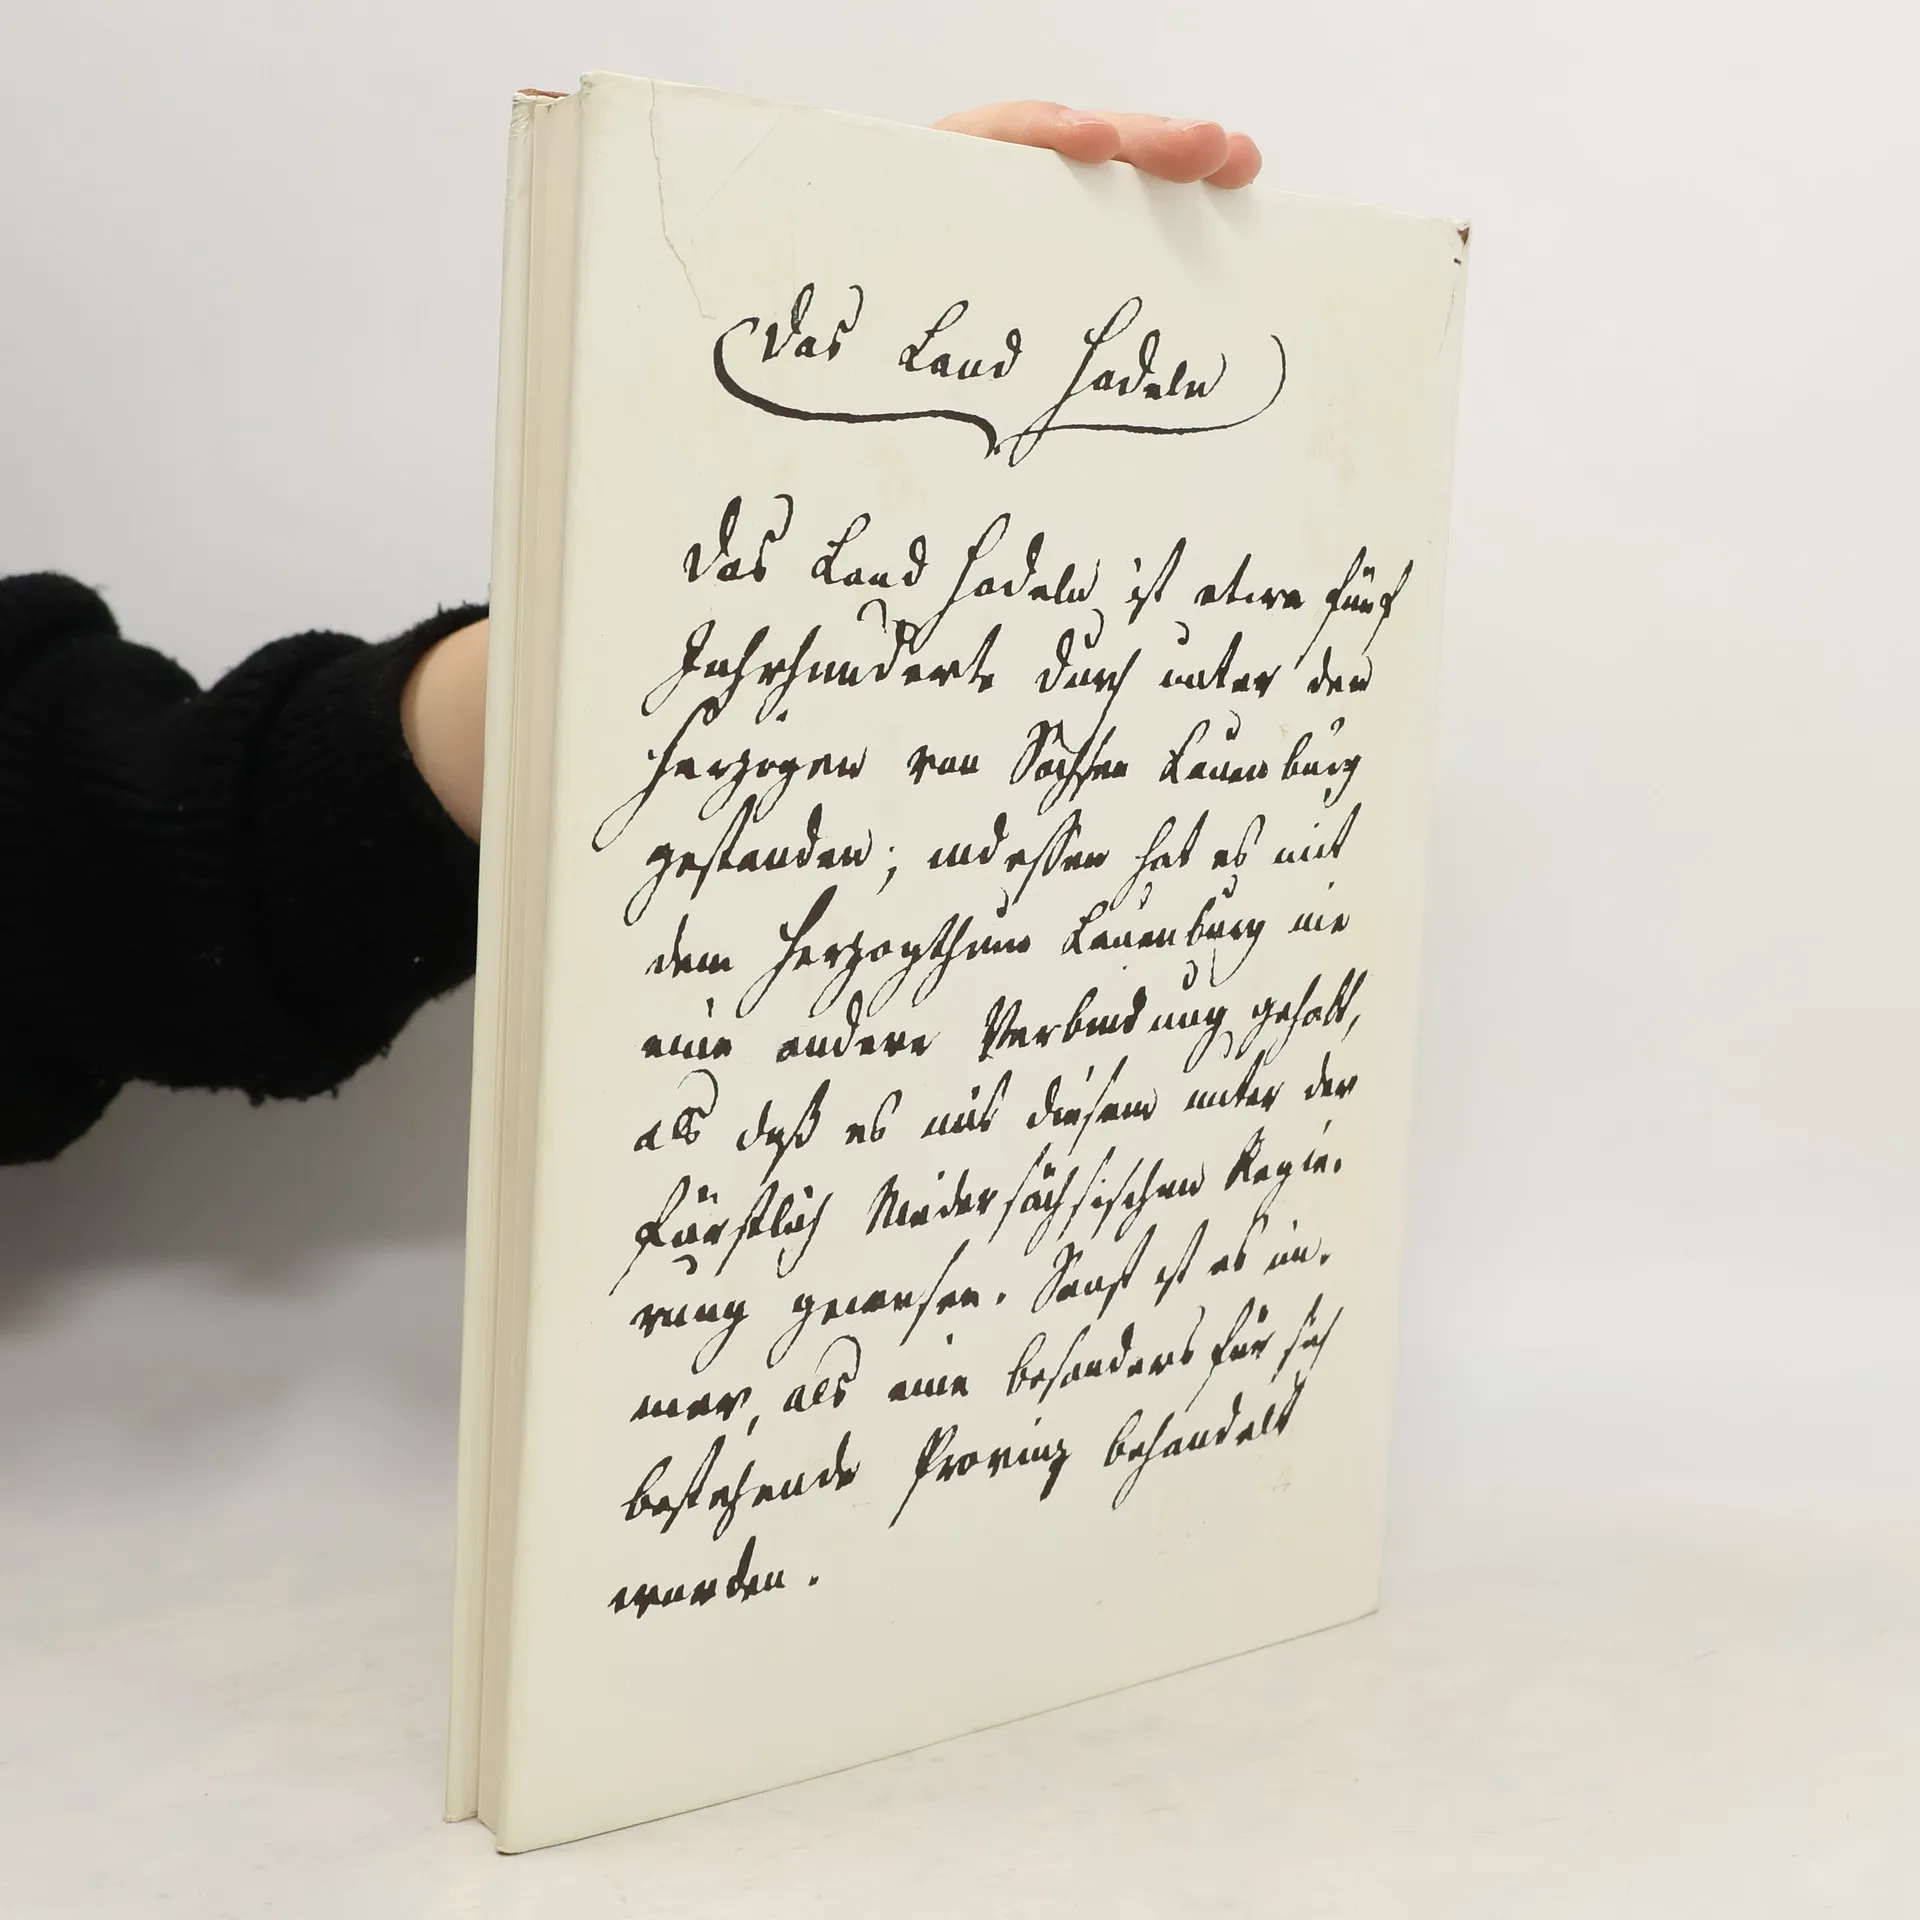 Das Land Hadeln
Das Land Hadeln ist etwa fünf
Jahrhunderte durch unter den
Herzögen von Sachsen Lauenburg
gestanden; indessen hat es mit
dem Herzogthum Lauenburg nie
eine andere Verbindung gehabt,
als daß es mit diesem unter der
fürstlich Niedersächsischen Regie-
rung gewesen. Sonst ist es im-
mer, als eine besonders für sich
bestehende Provinz behandelt
worden.